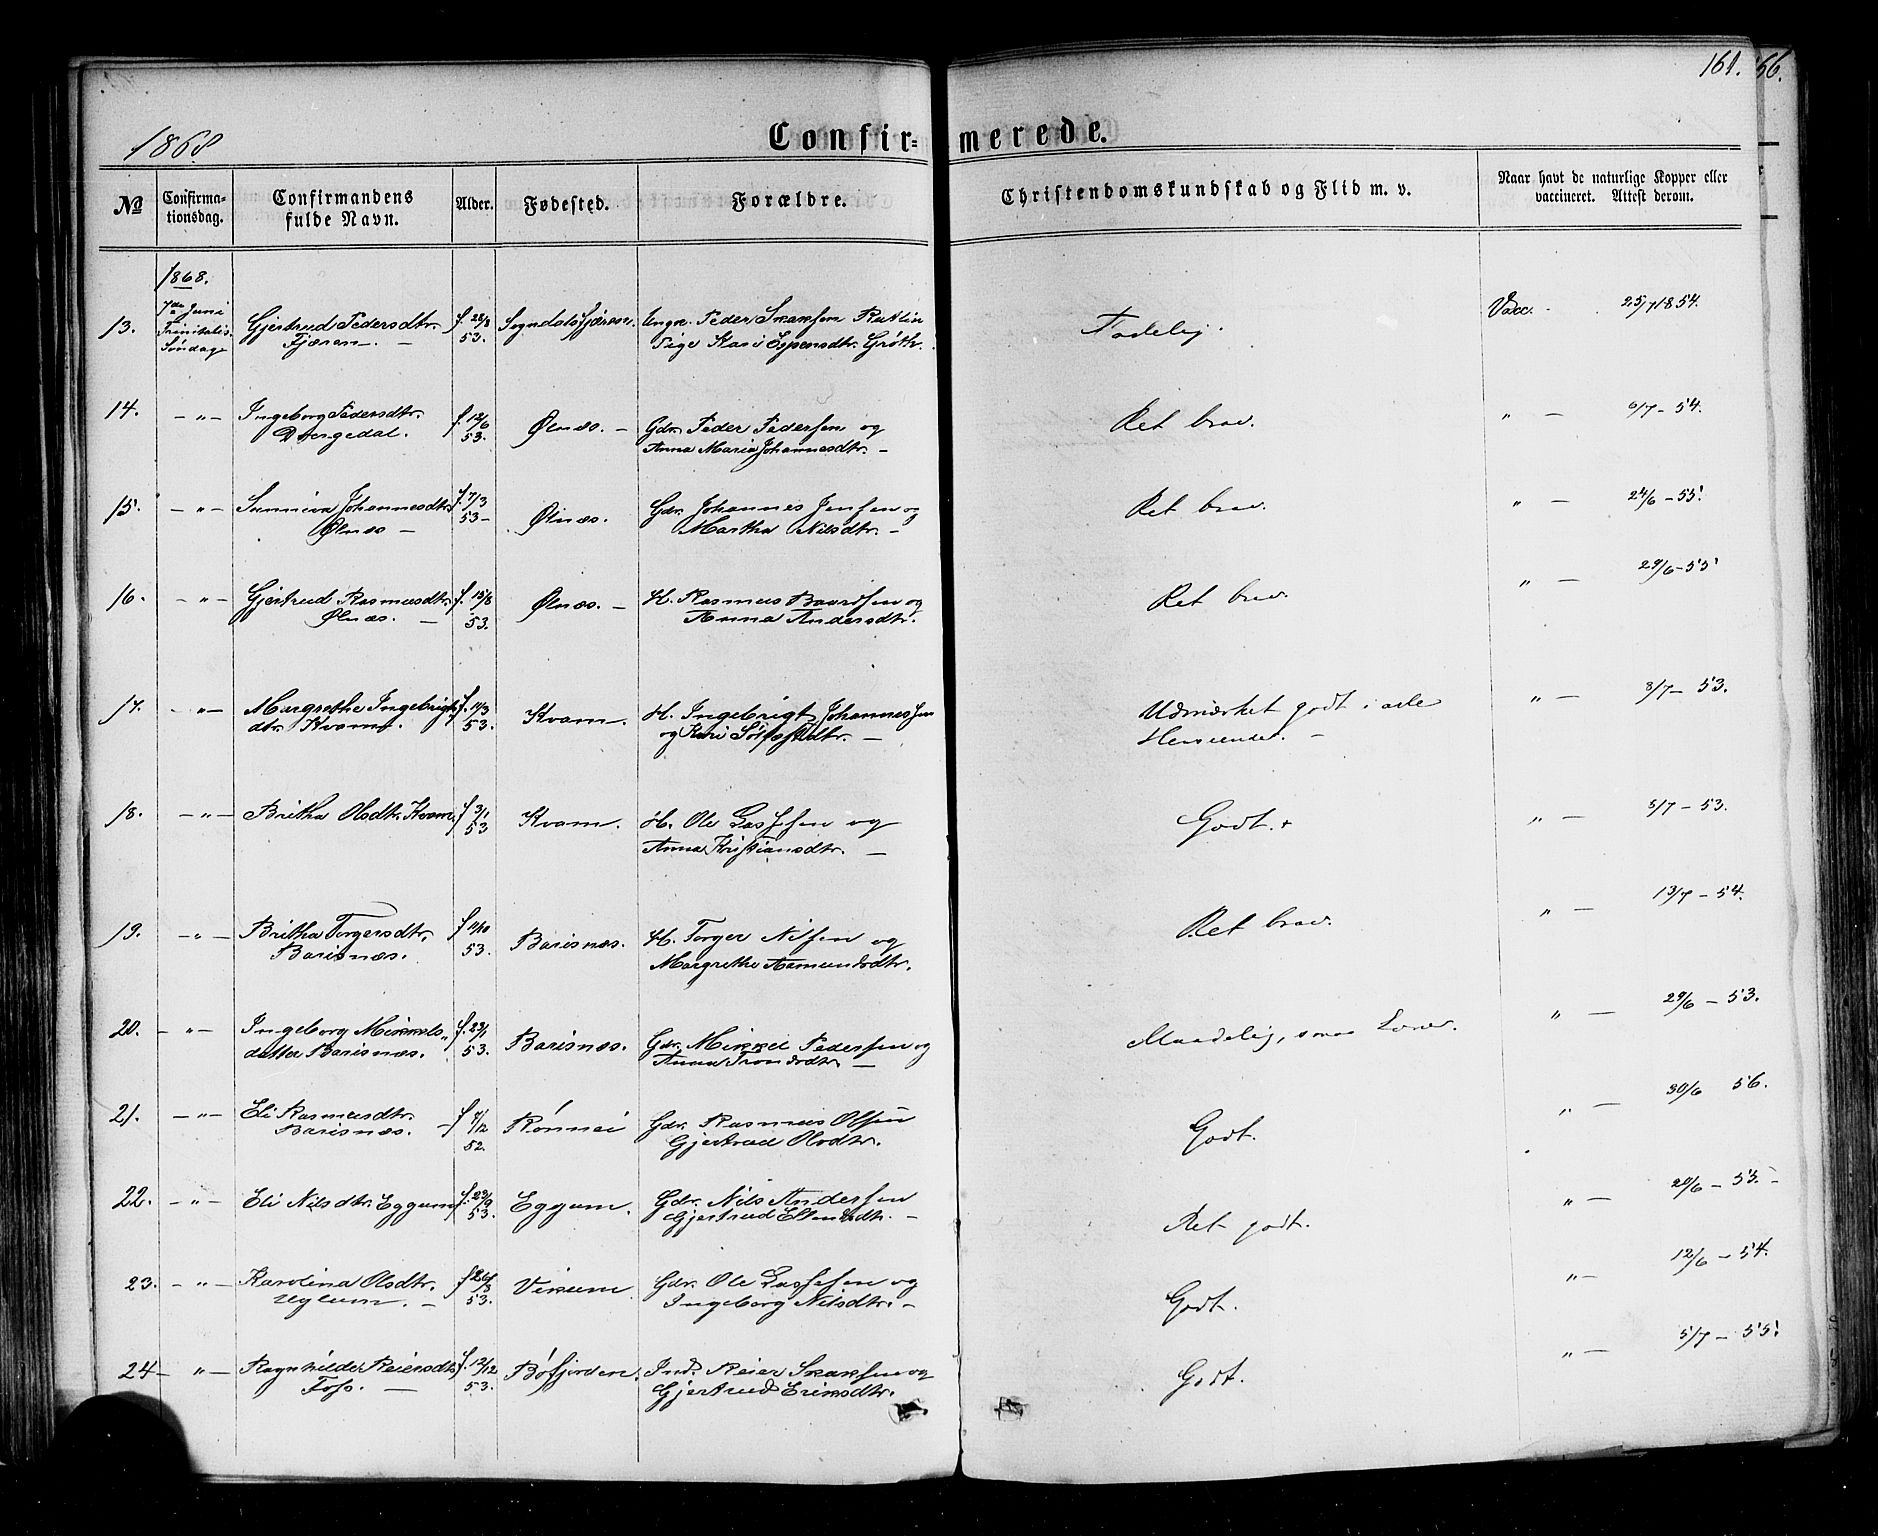 161. 66.
1868
Confir= merede.
№ Confirma-tionsdag. Confirmandens fulde Navn. Alder. Fødested. Forældre. Christendomskundskab og Flid m. v. Naar havt de naturlige Kopper eller vaccineret. Attest derom.
1868.
13. 7de Juni Gjertrud Pedersdtr. f. 28/8 Sogndalsfjæren. Ungk. Peder Skaksen Rutlin Vacc. 25/7 1854.
Trinitatis Fjæren. — 53. Pige Kari Espensdtr. Grøth.
Søndag
14. — " — Ingeborg Pedersdtr. f. 12/6 Ølnæs. — Gdr. Peder Pedersen og Ret brav. " — 6/7 — 54.
Dvergedal. 53. Anna Maria Johannesdtr. —
15. — " — Sunniva Johannesdtr. f. 7/3 Ølnæs. Gdr. Johannes Jensen og Ret brav. " — 24/6 — 55.
Ølnæs — 53 — Martha Nilsdtr. —
16. — " — Gjertrud Rasmusdtr. f. 15/8 Ølnæs. — H. Rasmus Baardsen og Ret brav. " — 29/6 — 55
Ølnæs. — 53. Anna Andersdtr.
17. — " — Margrethe Ingebrigts f. 11/3 Kvam. H. Ingebrigt Johannessen Udmærket godt i alle " — 8/7 — 53.
dtr. Kvam. 53. og Kari Sjursdtr. — Henseender. —
18. — " — Britha Olsdtr. Kvam. f. 3/1 Kvam. H. Ole Lassesen og Godt. + " — 5/7 — 53.
53 Anna Kristiansdtr. —
19. — " — Britha Torgersdtr. f. 11/10 Barisnæs. H. Torger Nilsen og Ret brav. " — 13/7 — 54.
Barisnæs. 53. Margrethe Aamundsdtr.
20. — " — Ingeborg Mikkels- f. 23/1 Barisnæs. Gdr. Mikkel Pedersen og Maadelig, svag Evne. " — 29/6 — 53.
datter Barisnæs. 53. Anna Trondsdtr. —
21. — " — Eli Rasmusdtr. f. /12 Rønnei Gdr. Rasmus Olsen Godt. " — 30/6 56.
Barisnæs. — 52. Gjertrud Olsdtr.
22. — " — Eli Nilsdtr. Eggum f. 23/9 Eggum. Gdr. Nils Andersen Ret godt. " — 20/6 — 53. —
53. Gjertrud Ellendsdtr. —
23. — " — Karolina Olsdtr. f. 26/3 Vikum. Gdr. Ole Lassesen og Godt. " — 12/6 — 54.
Uglum. — 53. Ingeborg Nilsdtr. —
24 — " — Ragnhilde Reiersdtr. f. 12/12 Bøfjorden. Inds. Reier Skaksen og Godt. " — 5/7 — 55.
Foss. — 53. Gjertrud Eriksdtr.